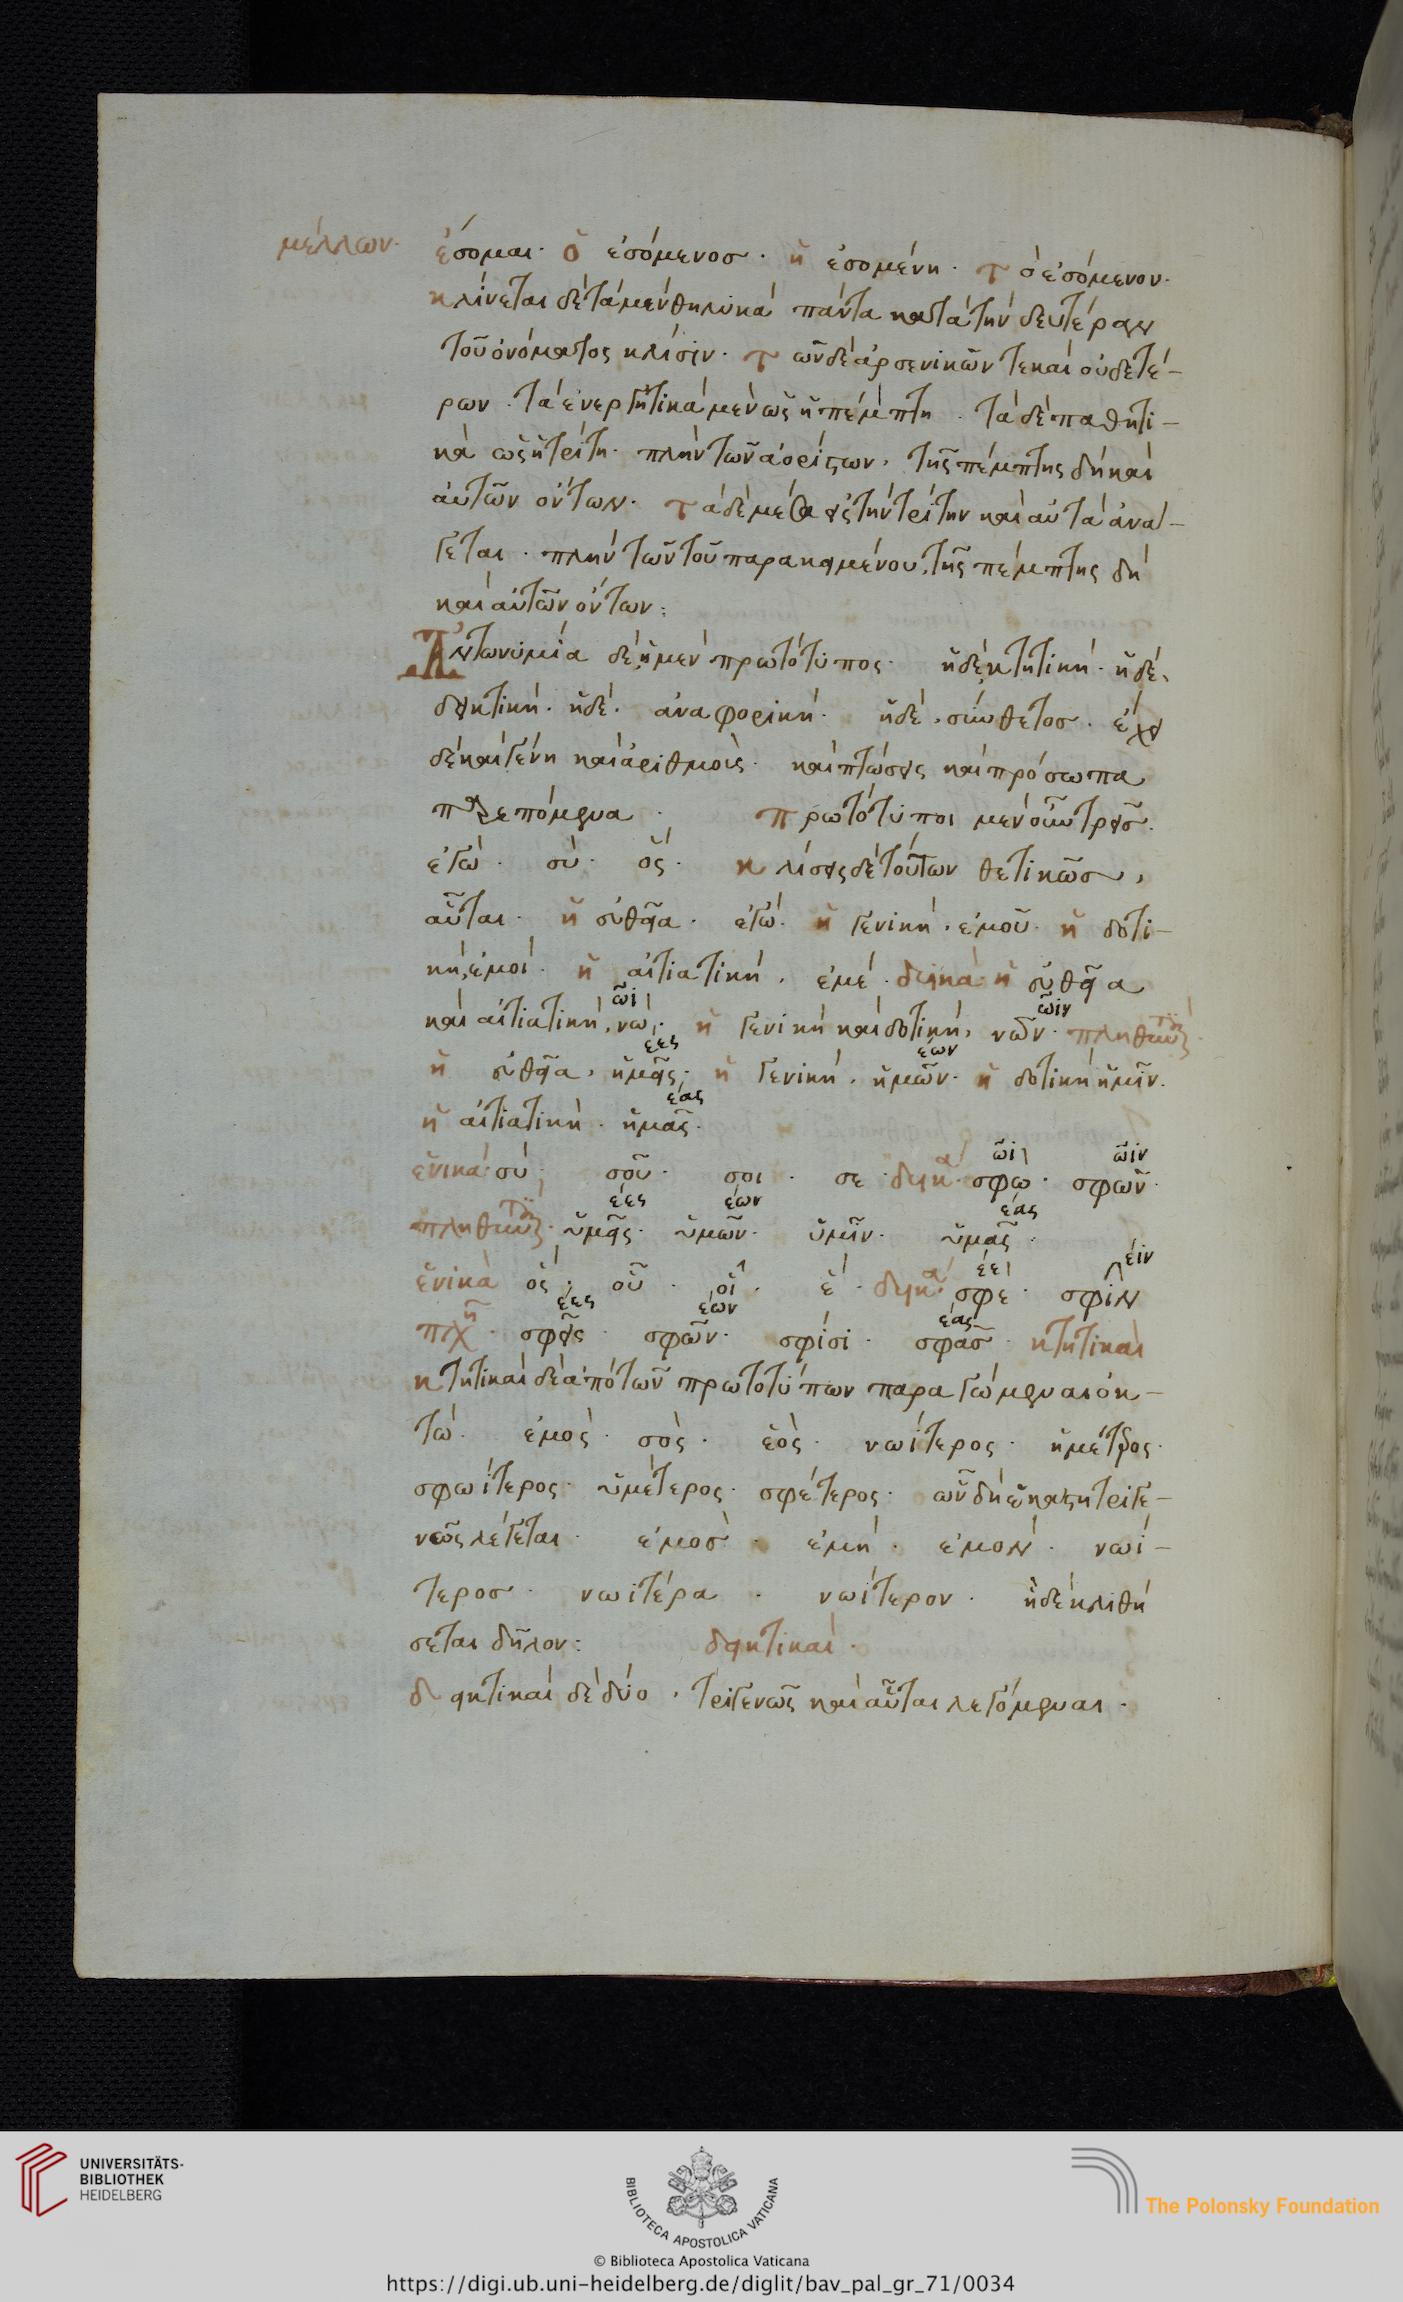 μέλλων· ἔσομαι· ὁ ἐσόμενος· ἡ ἐσομένη· τὸ ἐσόμενον·
κλίνεται δὲ τὰ μὲν θηλυκὰ πάντα κατὰ τὴν δευτέραν
τοῦ ὀνόματος κλίσιν· τῶν δὲ ἀρσενικῶν τε καὶ οὐδετέ–
ρων· τὰ ἐνεργητικὰ μὲν ὡς ἡ πέμπτη· τὰ δὲ παθητι–
κὰ ὡς ἡ τρίτη· πλὴν τῶν ἀορίστων, τῆς πέμπτης δὴ καὶ
αὐτῶν ὄντων· τὰ δὲ μέσα εἰς τὴν τρίτην καὶ αὐτὰ ἀνά–
γεται· πλὴν τῶν τοῦ παρακειμένου, τῆς πέμπτης δὴ
καὶ αὐτῶν ὄντων:
Ἀντωνυμία δὲ, ἡ μὲν πρωτότυπος· ἡ δὲ κτητική· ἡ δὲ,
δεικτική· ἡ δὲ· ἀναφορική· ἡ δὲ, σύνθετος· ἔχει
δὲ καὶ γένη καὶ ἀριθμοὺς· καὶ πτώσεις καὶ πρόσωπα
παρεπόμενα· πρωτότυποι μὲν οὖν τρεῖς·
ἐγώ· σύ· ὅς· κλίσεις δὲ τούτων θετικῶς,
αὗται· ἡ εὐθεῖα· ἐγώ· ἡ γενική, ἐμοῦ· ἡ δοτι–
κή, ἐμοί· ἡ αἰτιατική, ἐμέ· δυικὰ· ἡ εὐθεῖα
ῶϊ ῶϊν
καὶ αἰτιατική, νώ· ἡ γενικὴ καὶ δοτική, νῶν·
έες έων
ἡ εὐθεῖα, ἡμεῖς· ἡ γενική, ἡμῶν· ἡ δοτικὴ ἡμῖν·
έας
ἡ αἰτιατική· ἡμᾶς·
ῶϊ ῶϊν
ἑνικὰ· σύ, σοῦ· σοι· σε· δυικὰ· σφω· σφῶν·
έες έων έας
ὑμεῖς· ὑμῶν· ὑμῖν· ὑμᾶς·
έε έϊν
ἑνικὰ ὅς· οὗ· οἷ· ἕ· δυικὰ· σφε· σφίν
έες έων έας
σφεῖς· σφῶν· σφίσι· σφᾶς· κτητικαὶ
κτητικαὶ δὲ ἀπὸ τῶν πρωτοτύπων παραγώμεναι ὀκ–
τώ· ἐμὸς· σὸς· ἑὸς· νωΐτερος· ἡμέτερος·
σφωΐτερος· ὑμέτερος· σφέτερος· ὧν δὴ ἑκάστη τριγε–
νῶς λέγεται· ἐμὸς· ἐμή· ἐμόν· νωΐ–
τερος· νωϊτέρα· νωΐτερον· ἡ δὲ κλιθή
σεται δῆλον: δεικτικαὶ·
δεικτικαὶ δὲ δύο, τριγενῶς καὶ αὗται λεγόμεναι·
UNIVERSITÄTS-
BIBLIOTHEK
HEIDELBERG
BIBLIOTECA APOSTOLICA VATICANA
The Polonsky Foundation
© Biblioteca Apostolica Vaticana
https://digi.ub.uni-heidelberg.de/diglit/bav_pal_gr_71/0034